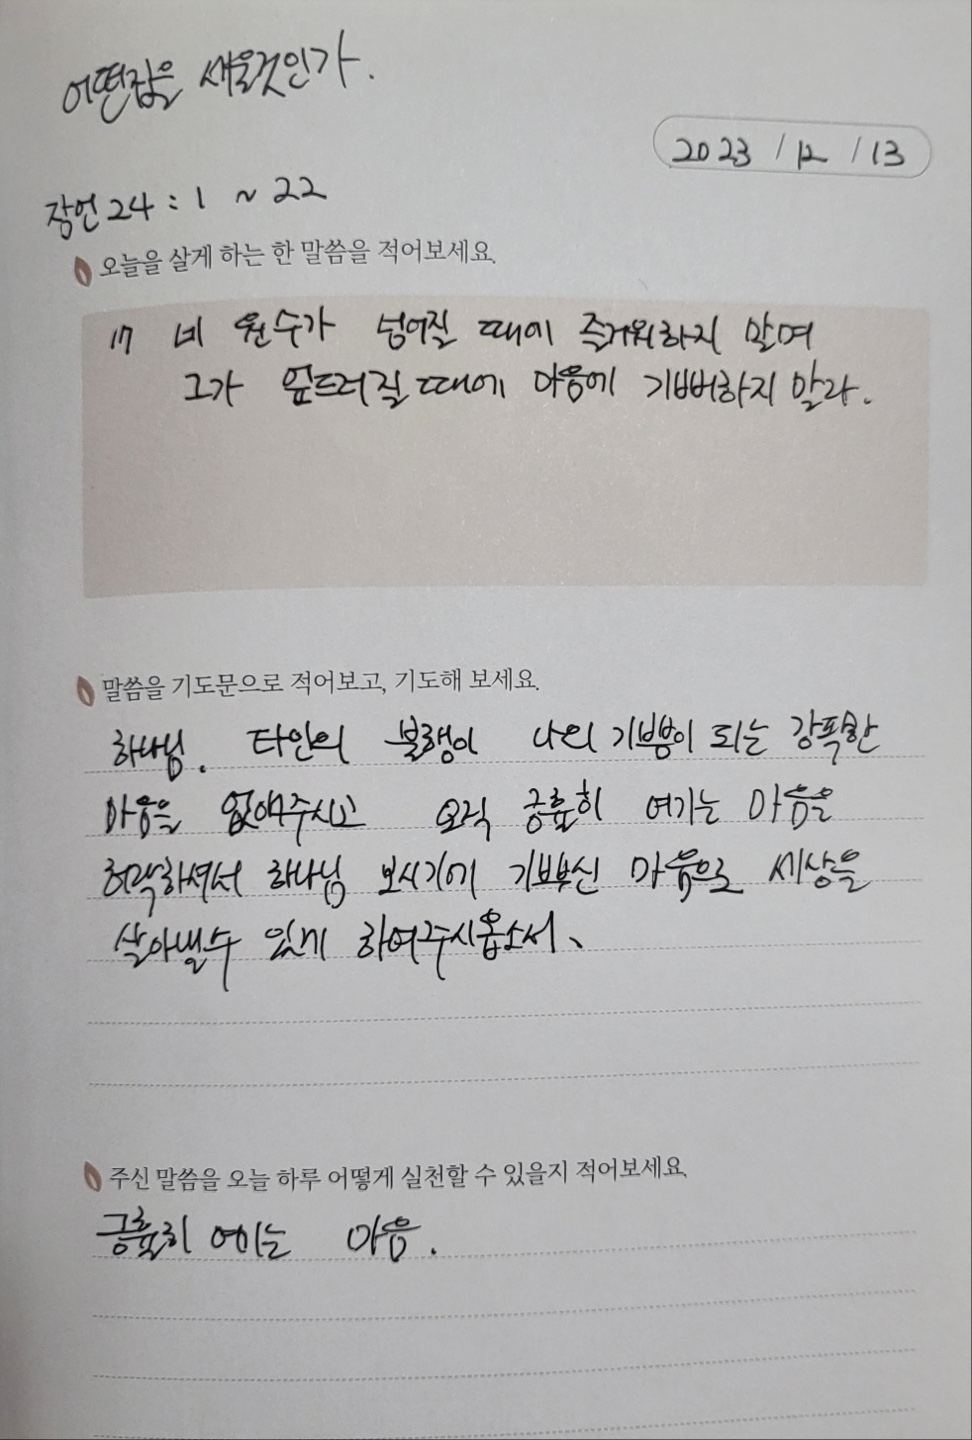 어떤집을 세울것인가.
2023 / 12 / 13
잠언 24 : 1 ~ 22
오늘을 살게 하는 한 말씀을 적어보세요.
17 네 원수가 넘어질 때에 즐거워하지 말며
그가 엎드러질 때에 마음에 기뻐하지 말라.
말씀을 기도문으로 적어보고, 기도해 보세요.
하나님. 타인의 불행이 나의 기쁨이 되는 강퍅한
마음을 없애주시고 오직 긍휼히 여기는 마음을
허락하셔서 하나님 보시기에 기쁘신 마음으로 세상을
살아낼수 있게 하여주시옵소서.
주신 말씀을 오늘 하루 어떻게 실천할 수 있을지 적어보세요.
긍휼히 마음.